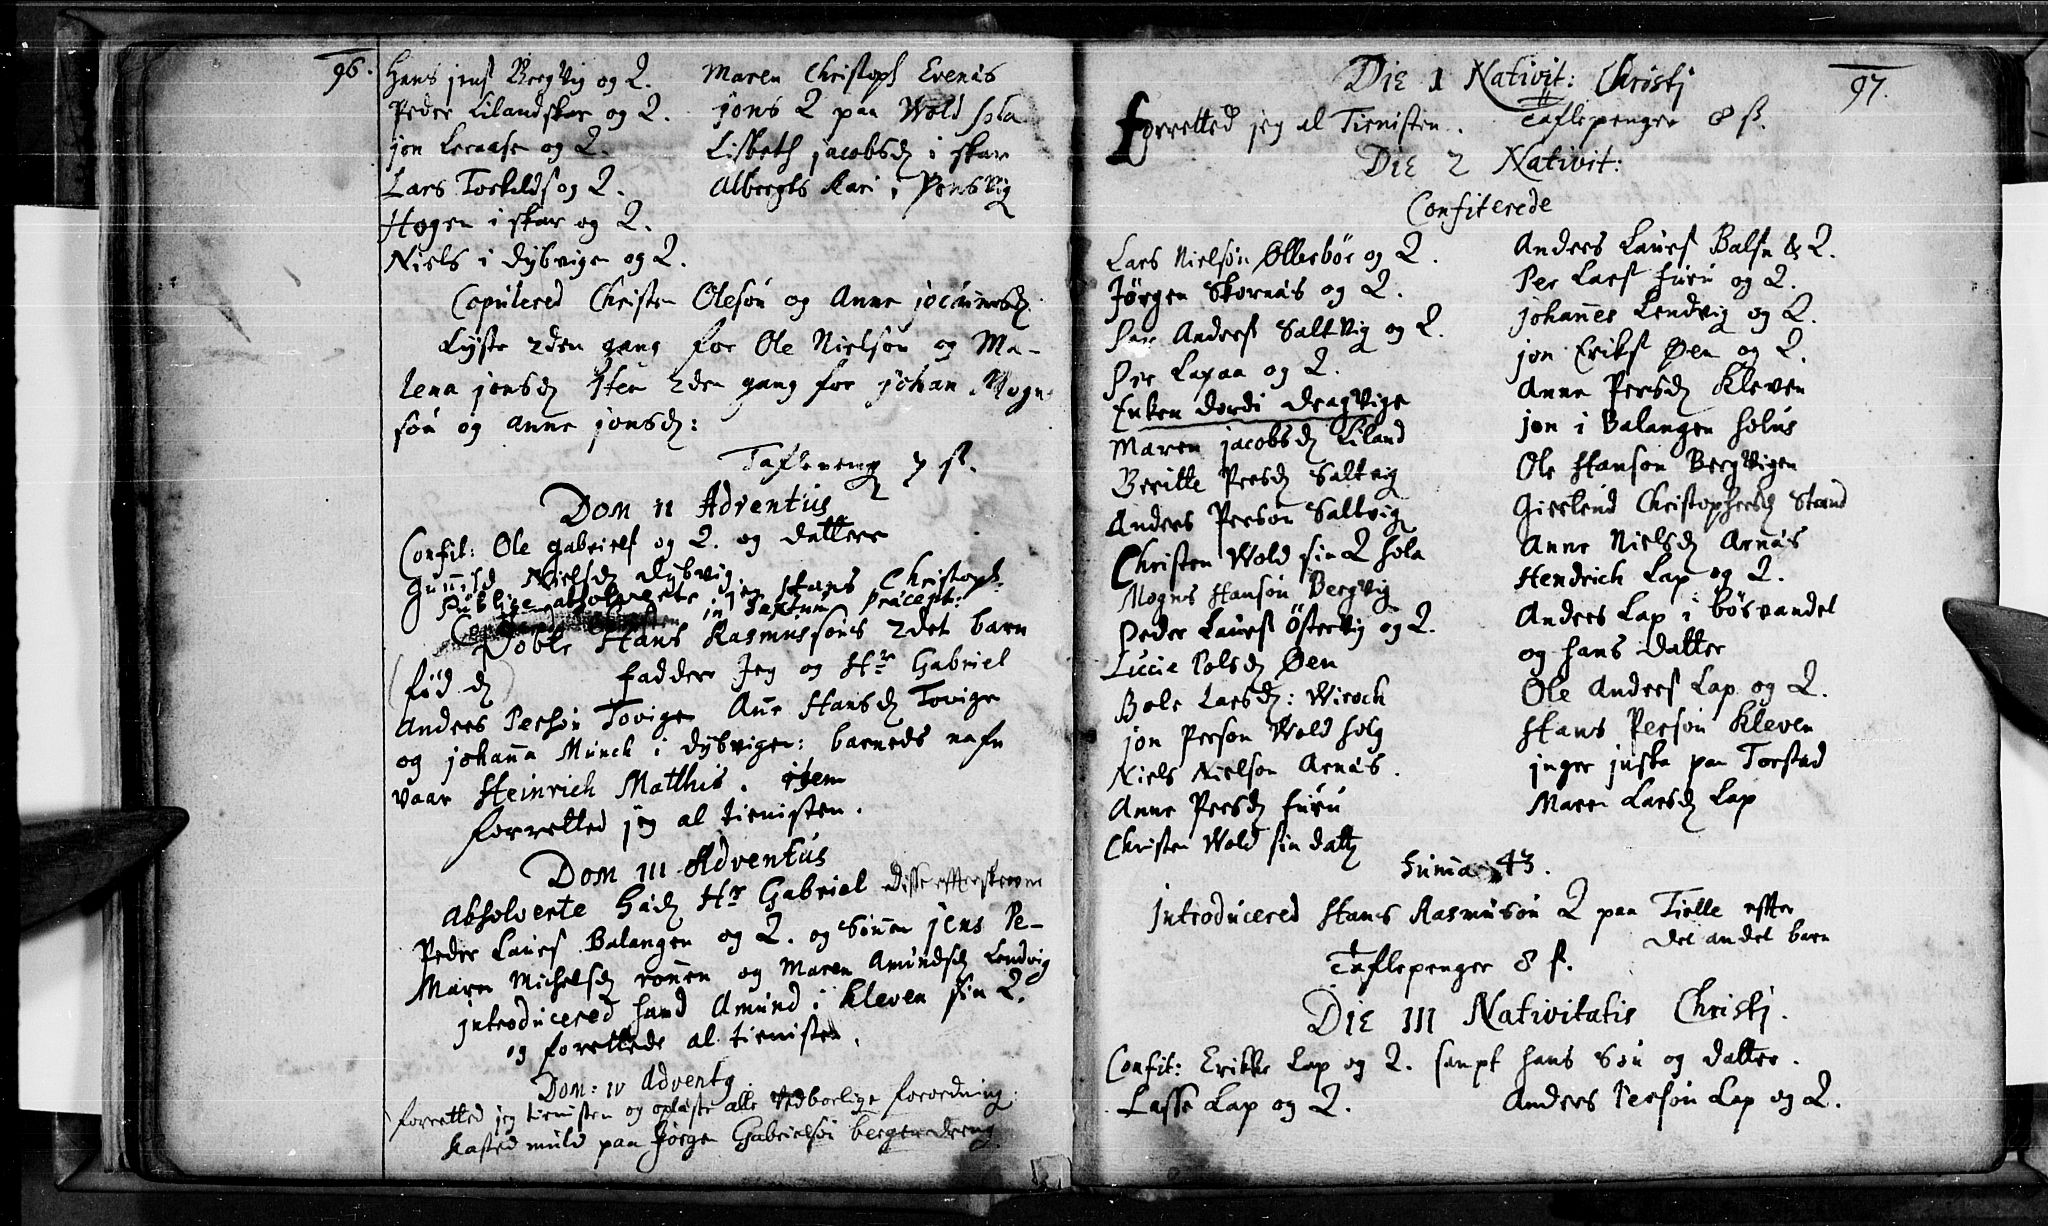 96.
Hans jens Bergvig og Q.
Peder Lilandskar og Q.
jon Leraasen og Q.
Lars Torkilds og Q.
Hogen i skar og Q.
Niels i dybvigen og Q.
Maren Christoph Evenäs
jons Q paa Wold hola
Lisbeth jacobsd i skar
Albregts kari i Ponsvig
Copulered Christen Olesøn og Anne
Lyste 2den gang for Ole Nielsøn og Ma-
lena jonsd Item 2den gang for johan Mogn-
søn og anne jonsd:
Taflepeng 7 ß.
Dom II Adventus
Confit: Ole gabriels og Q. og datter
Gunild Nielsd dybvig
Publice absolverte jeg Hans Christoph:
in sextum præcept:
Døbte Hans Rasmussøns 2det barn
(fød d ) faddere Jeg og Hr Gabriel
Anders Persøn Tovigen Ane Hansd Tovigen
og johanna Munck i dybvigen: barneds nafn
vaar Heinrich Matthis. item
forretted jeg al tienisten.
Dom III Adventus
Absolverte Hr Gabriel disse effterskrevne
Peder Laurs Balangen og Q. og Sønnen jens Pe-
Maren Michelsd ronen og Maren Amundsd Lendvig
introducered hand Amund i Kleven sin Q.
og forettede al tienisten.
Dom: IV Advent
forretted jeg tienisten og oplæste alle vedbørlige forordning:
kasted muld paa Jørgen Gabrielsøn bergen dreng
97.
Die 1 Nativit: Christi
forretted jeg al Tienisten. Taflepenger 8 ß.
Die 2 Nativit:
Confiterede
Lars Nielsøn Ollebør og Q.
Jørgen Skornäs og Q.
Per Anders Saltvig og Q.
Per Laxaa og Q.
Enken dordi dragvige
Maren jacobsd Liland
Beritte Persd Saltvig
Anders Persøn Saltvig
Christen Wold sin Q hola
Mogns Hansøn Bergvig
Peder Laurs Östervig og Q.
Lucie Polsd Øen
Bole Larsd: Wiroch
jon Person Wold holg
Niels Nielsøn Arnäs.
Anne Persd furu
Christen Wold sin datt
Anders Laurs Balsn & Q.
Per Lars furu og Q.
johannes Lendvig og Q.
jon Eriks Øen og Q.
Anne Persd Kleven
jon i Balangen holus
Ole Hanson Bergvigen
Gierlend Christophersd Strand
Anne Nielsd Arnäs
Hendrich Lap og Q.
Anders Lap i bösvandet
og hans datter
Ole Anders Lap og Q.
Hans Persøn Kleven
inger juska paa Torstad
Maren Larsd Lap
Summa 43.
Introducered Hans Rasmusøn Q paa Tielle effter
det andet barn
Taflepenger 8 ß.
Die III Nativitatis Christi.
Confit: Erikke Lap og Q. sampt hans Søn og datter.
Lasse Lap og Q.
Anders Persøn Lap og Q.